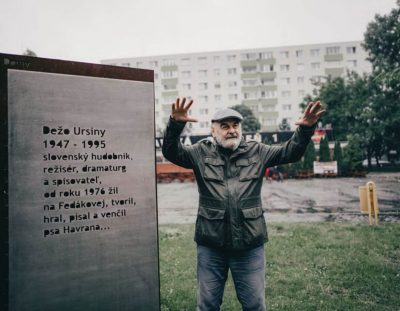 Dežo Ursiny
1947 - 1995
slovenský hudobník,
režisér, dramaturg
a spisovateľ,
od roku 1976 žil
na Fedákovej, tvoril,
hral, písal a venčil
psa Havrana...